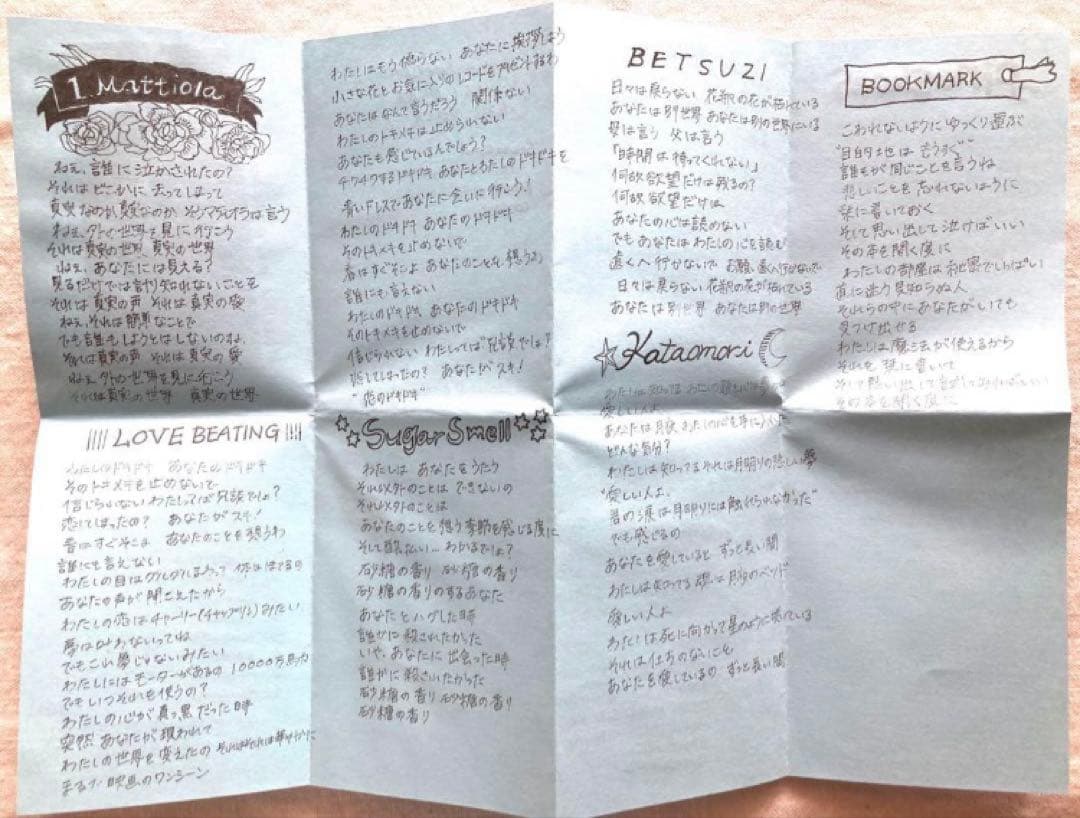 1. Mattiola
ねぇ、誰に泣かされたの?
それはどこかに 去ってしまって
真実なのか真実なのか そうマティオラは言う
ねぇ、外の世界を見に行こう
それは真実の世界、真実の世界
ねぇ、あなたには見える?
見るだけでは計り知れないことを
それは真実の声 それは真実の愛
ねぇ、それは簡単なことで
でも誰もしようとはしないのよね
それは真実の声 それは真実の愛
ねぇ 外の世界を見に行こう
それは真実の世界 真実の世界
LOVE BEATING
わたしのドキドキ あなたのドキドキ
そのトキメキを止めないで
信じられない わたしってば冗談でしょ?
恋してしまったの? あなたがスキ!
春はすぐそこよ あなたのことを想うわ
誰にも言えない
わたしの目はグルグルまわって
あなたの声が聞こえたから
わたしの恋はチャーリー(チャップリン)みたい
夢は叶わないってね
でもこれ夢じゃないみたい
わたしにはモーターがあるの 10000万馬力
でもいつそれを使うの?
わたしの心が真っ黒だった時
突然 あなたが現われて
わたしの世界を変えたの それはそれは華やかに
まるで 映画のワンシーン
わたしはもう怒らない あなたに挨拶しよう
小さな花とお気に入りのレコードをプレゼントするわ
あなたはなんて言うだろう 関係ない
わたしのトキメキは止められない
あなたも感じているんでしょう?
チクチクするドキドキ あなたとわたしのドキドキを
青いドレスであなたに会いに行こう!
わたしのドキドキ あなたのドキドキ
そのトキメキを止めないで
春はすぐそこよ あなたのことを想うわ
誰にも言えない
わたしのドキドキ あなたのドキドキ
そのトキメキを止めないで
信じられない わたしってば冗談でしょ?
恋してしまったの? あなたがスキ!
"恋のドキドキ"
Sugar Smell
わたしは あなたをうたう
それ以外のことは できないの
それ以外のことは
あなたのことを想う季節を感じる度に
そして酔払い… わかるでしょ?
砂糖の香り 砂糖の香り
砂糖の香りのするあなた
あなたとハグした時
誰かに殺されたかった
いや、あなたに出会った時
誰かに殺されたかった
砂糖の香り 砂糖の香り
砂糖の香り
BETSUZI
日々は戻らない 花瓶の花が枯れている
あなたは別世界 あなたは別の世界にいる
母は言う 父は言う
「時間は待ってくれない」
何故欲望だけは残るの?
何故欲望だけは
あなたの心は読めない
でもあなたはわたしの心を読む
遠くへ行かないで お願い遠くへ行かないで
日々は戻らない 花瓶の花が枯れている
あなたは別世界 あなたは別の世界
Kataomoi
愛しい人よ
あなたは月夜 わたしの心を手に入れた
どんな気分?
わたしは知ってる それは月明りの悲しい夢
"愛しい人よ、
君の涙は月明りには触れられなかった"
でも感じるの
あなたを愛していると ずっと長い間
わたしは知ってる 僕は月のベッド
愛しい人よ
わたしは死に向かって星のように
それは仕方のないこと
あなたを愛しているの ずっと長い間
BOOKMARK
こわれないように ゆっくり運ぶ
"目的地は もうすぐ"
誰もが同じことを言うね
悲しいことを忘れないように
栞に書いておく
そして思い出して泣けばいい
その本を開く度に
わたしの部屋は秘密でいっぱい
道に迷う見知らぬ人
それらの中にあなたがいても
見つけ出せる
わたしは魔法が使えるから
それを 栞に書いて
そして思い出して
その本を開く度に